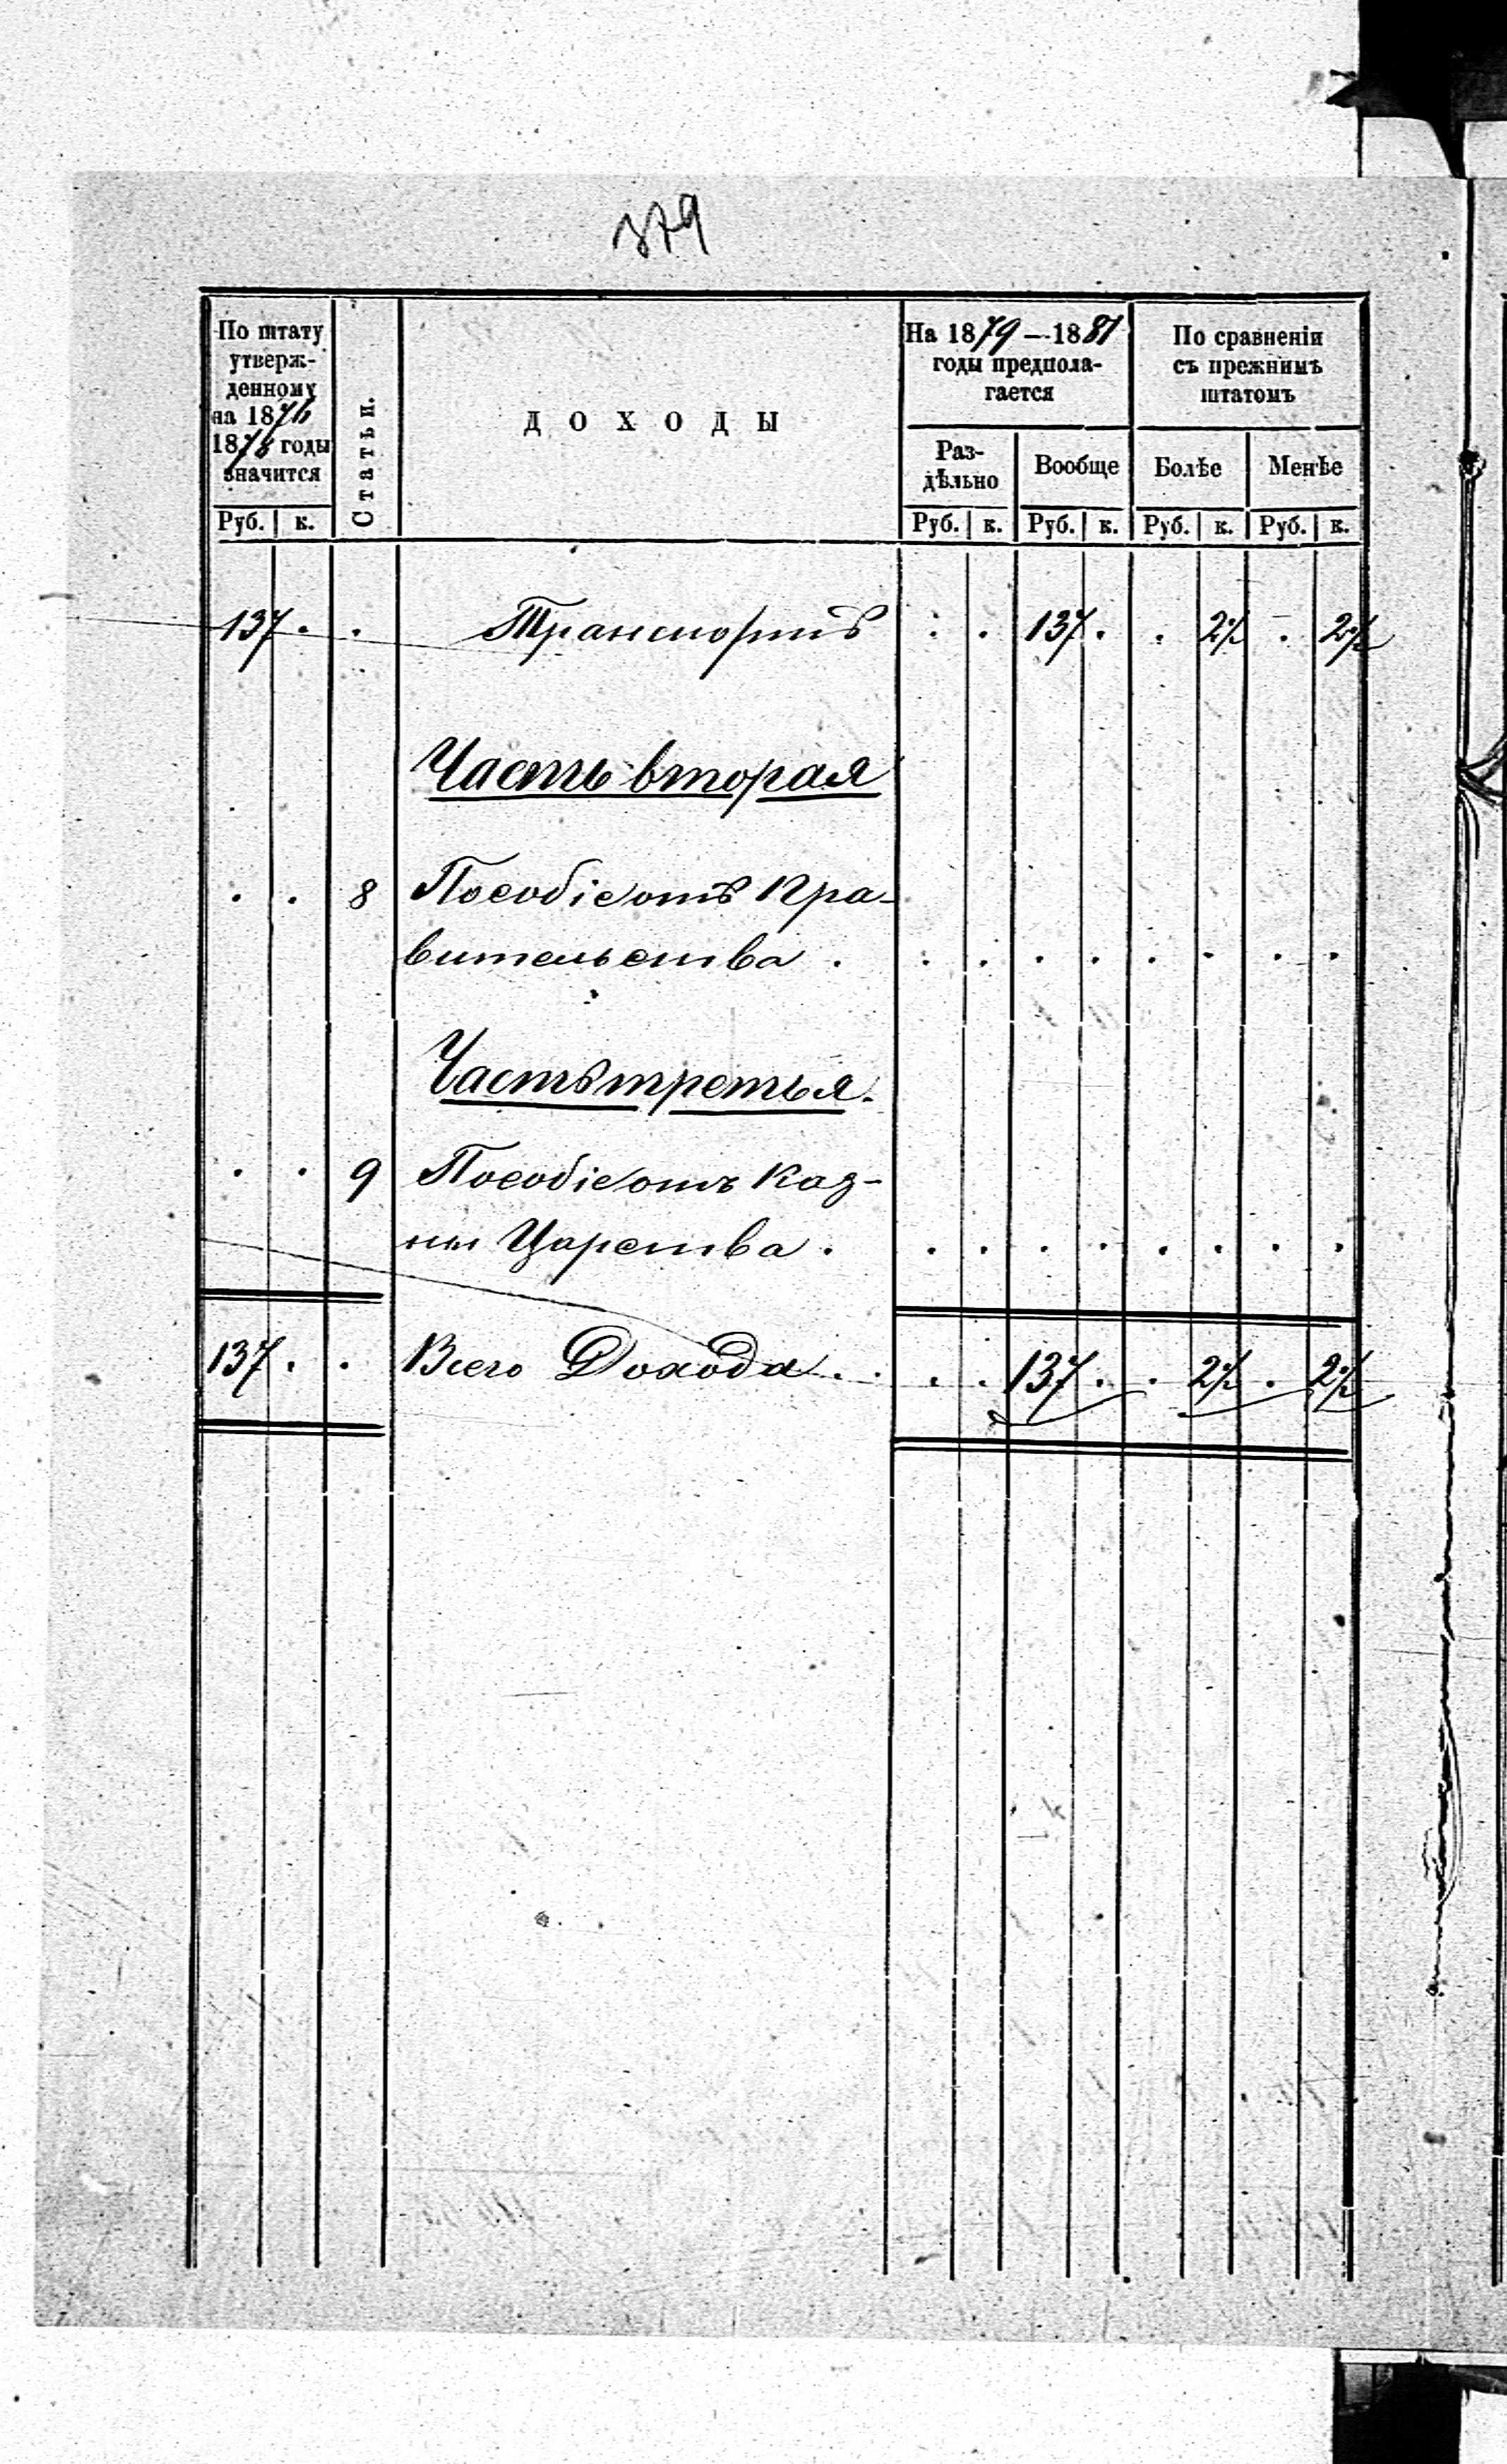 379
По штату
утверж-
денному
на 1876
1878 годы
значится
Статьи.
ДОХОДЫ
На 1879—1881
годы предпола-
гается
По сравненію
съ прежнимъ
штатомъ
Раз-
дѣльно
Вообще
Болѣе
Менѣе
Руб. к. Руб. к. Руб. к. Руб. к. Руб. к.
137 . . Транспортъ . . 137 . . 2½ . 2½
Часть вторая
. . 8 Пособіе отъ Пра-
вительства . . . . . . . . .
Часть третья.
. . 9 Пособіе отъ Каз-
ны Царства . . . . . . . . .
137 . . Всего Дохода . . . . 137 . . 2½ . 2½